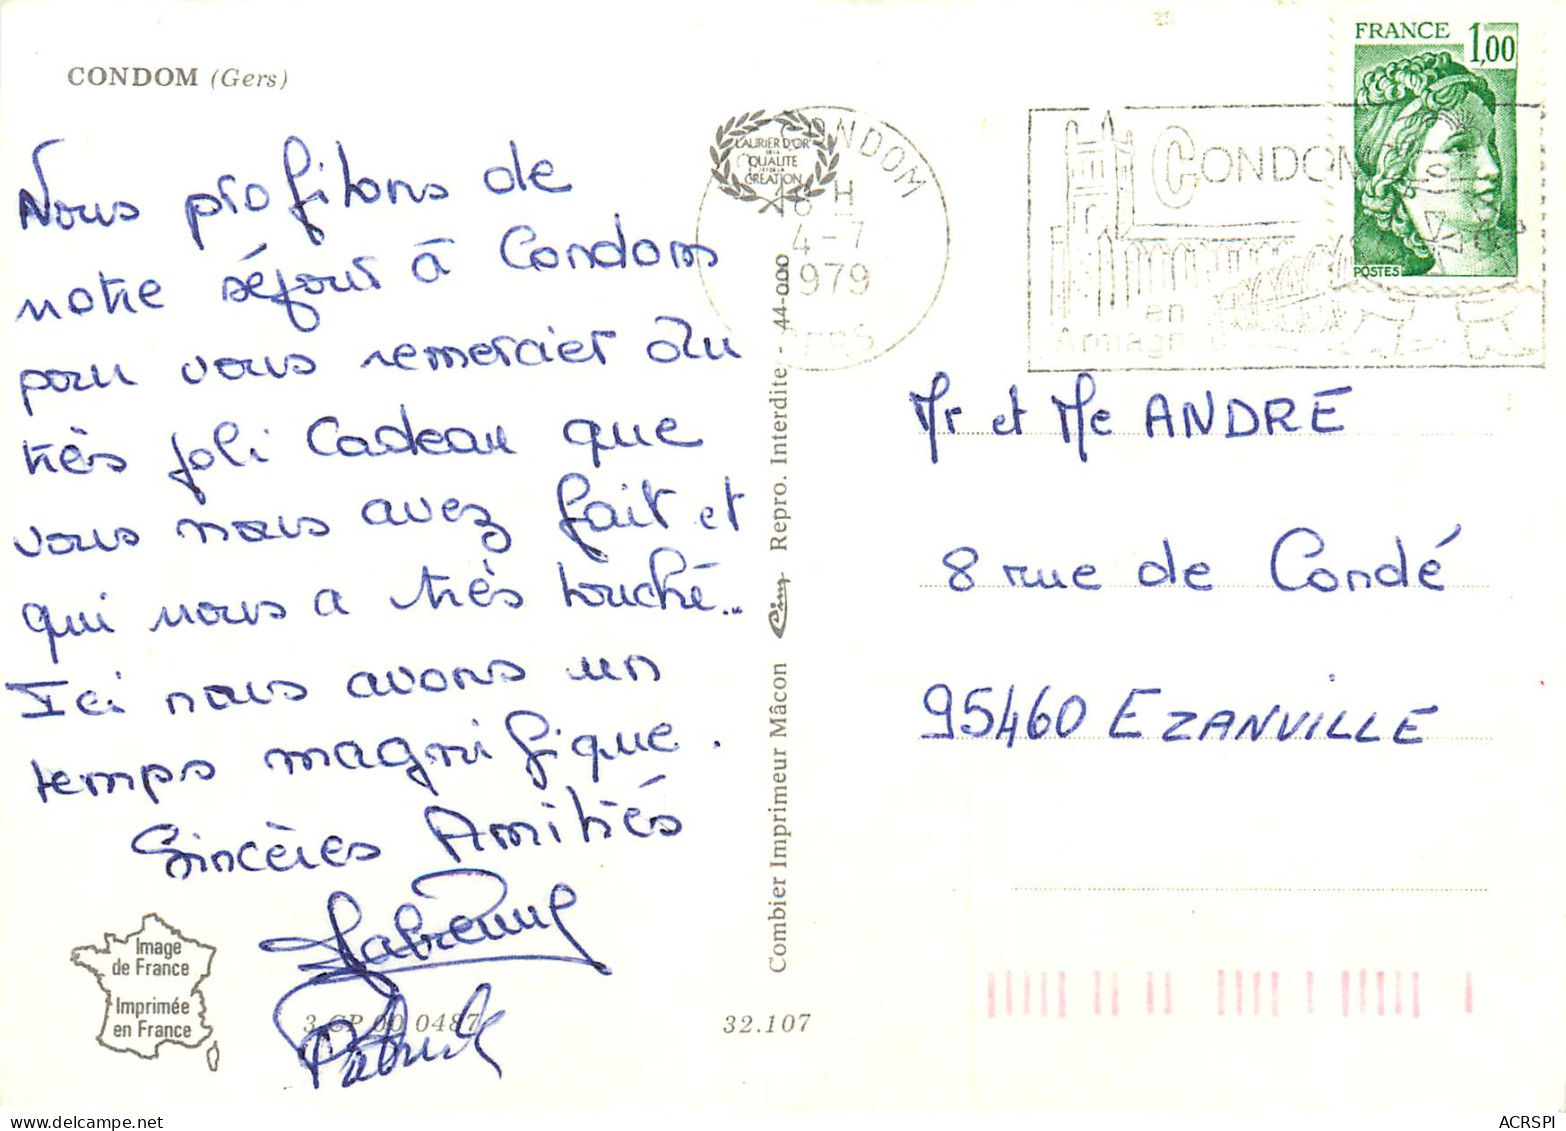 CONDOM (Gers)
Nous profitons de
notre séjour à Condom
pour vous remercier du
très joli cadeau que
vous nous avez fait et
qui nous a très touché...
Ici nous avons un
temps magnifique.
Sincères Amitiés
Patrick
Image
de France
Imprimée
en France
3 CP 00 0487
32.107
Combier Imprimeur Mâcon Cim Repro. Interdite - 44-000
LAURIER D'OR
DE LA
QUALITÉ
ET DE LA
CRÉATION
CONDOM
18 H
4-7
1979
GERS
CONDOM
en
Armagnac
FRANCE 1,00
POSTES
Mr et Me ANDRÉ
8 rue de Condé
95460 EZANVILLE
ACRSPI